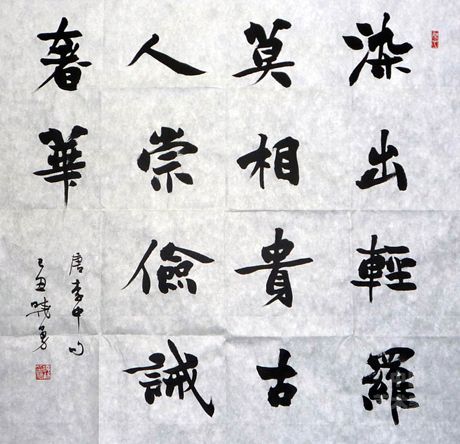 染出輕羅
莫相貴古
人崇儉誡
奢華
唐李中句
己丑曉勇